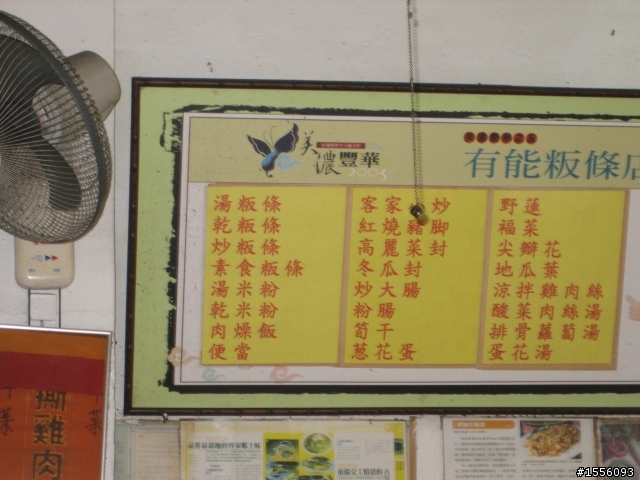 美濃豐華
2003
有能粄條店
湯粄條
乾粄條
炒粄條
素食粄條
湯米粉
乾米粉
肉燥飯
便當
客家 炒
紅燒豬脚
高麗菜封
冬瓜封
炒大腸
粉腸
筍干
蔥花蛋
野蓮
福菜
尖瓣花
地瓜葉
涼拌雞肉絲
酸菜肉絲湯
排骨蘿蔔湯
蛋花湯
撕雞肉
菜
#1556093